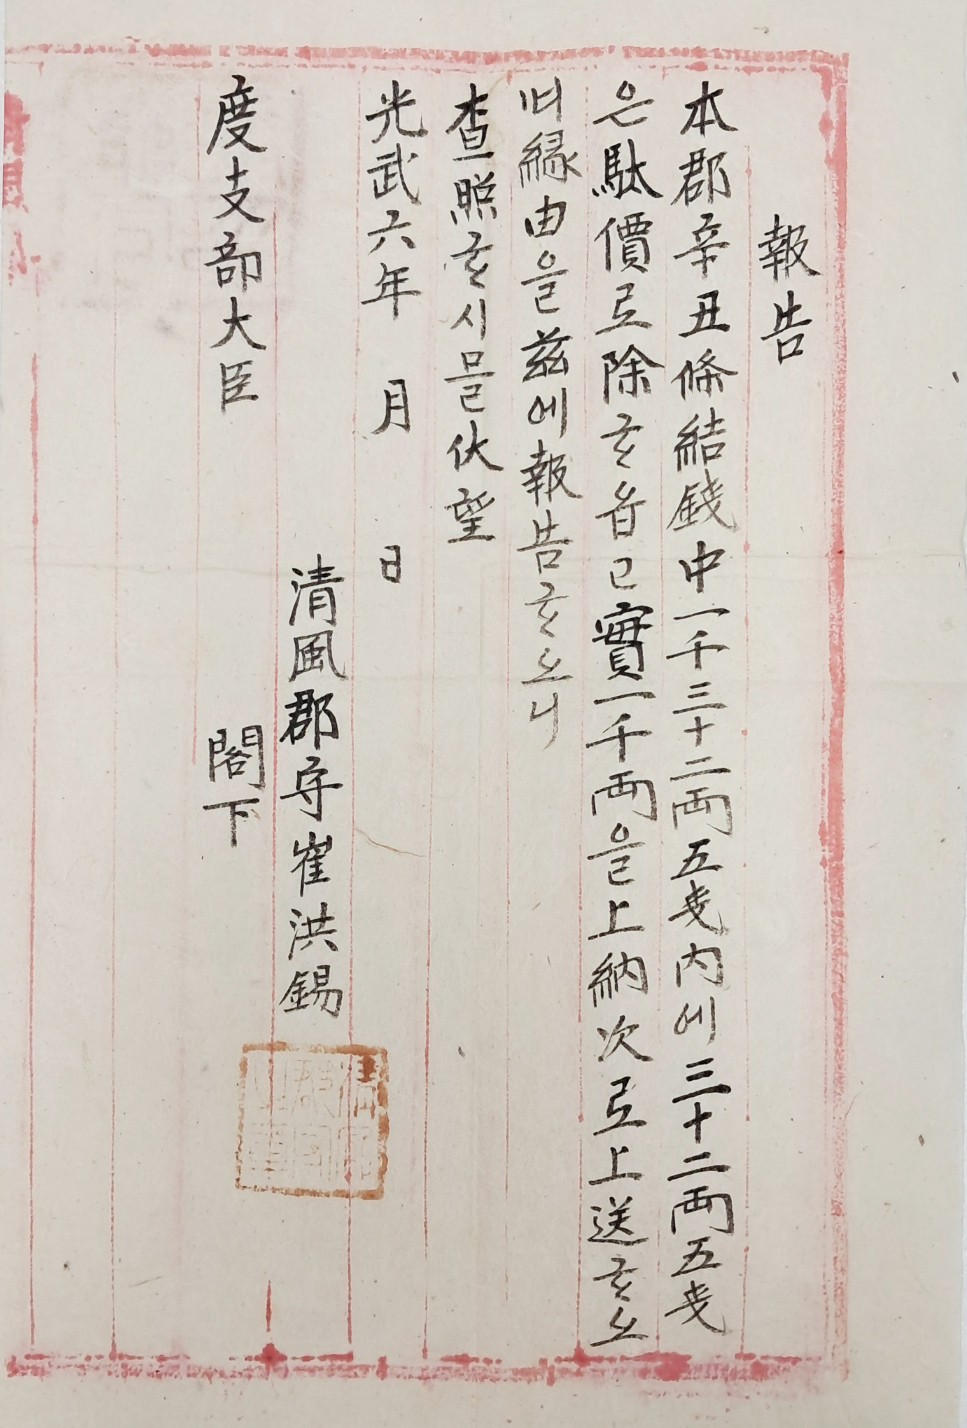 報告
本郡辛丑條結錢中一千三十二両五戔內에三十二両五戔
은駄價로除ᄒᆞ옵고實一千両을上納次로上送ᄒᆞ오
며緣由을玆에報告ᄒᆞ오니
査照ᄒᆞ시믈伏望
光武六年 月 日
清風郡守崔洪錫
度支部大臣 閣下